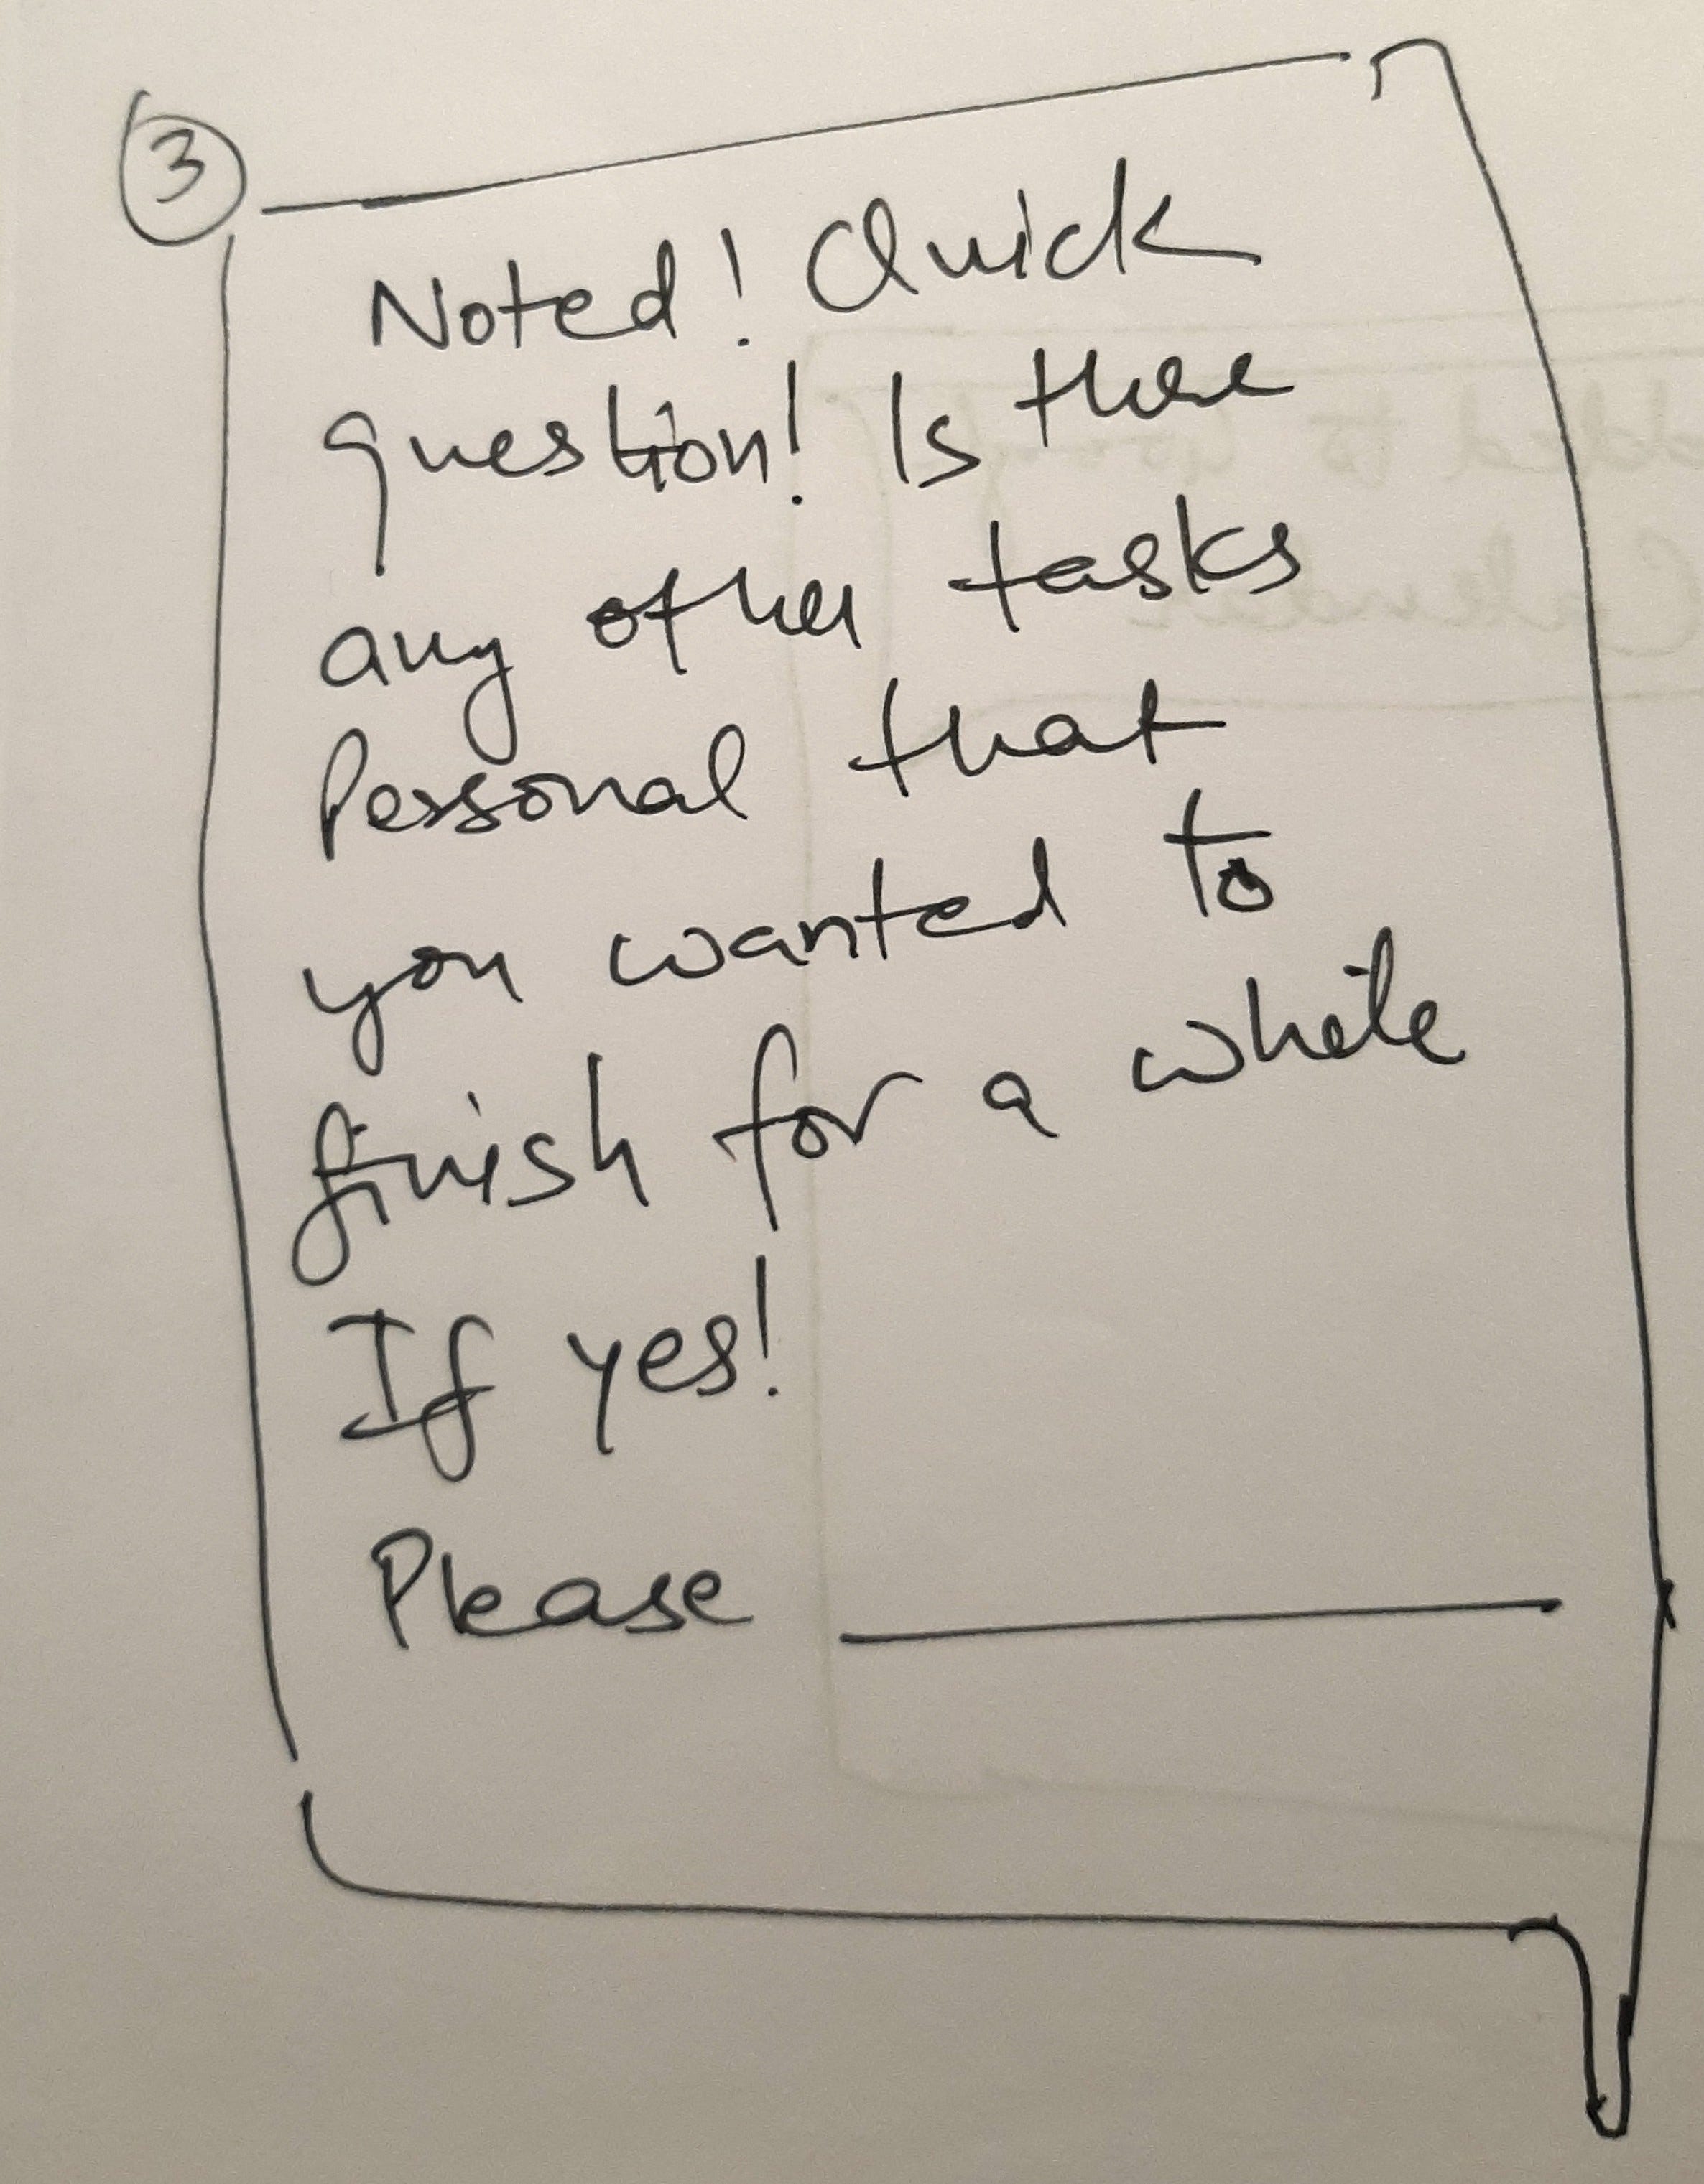 3
Noted! Quick
question! Is there
any other tasks
Personal that
you wanted to
finish for a while
If yes!
Please